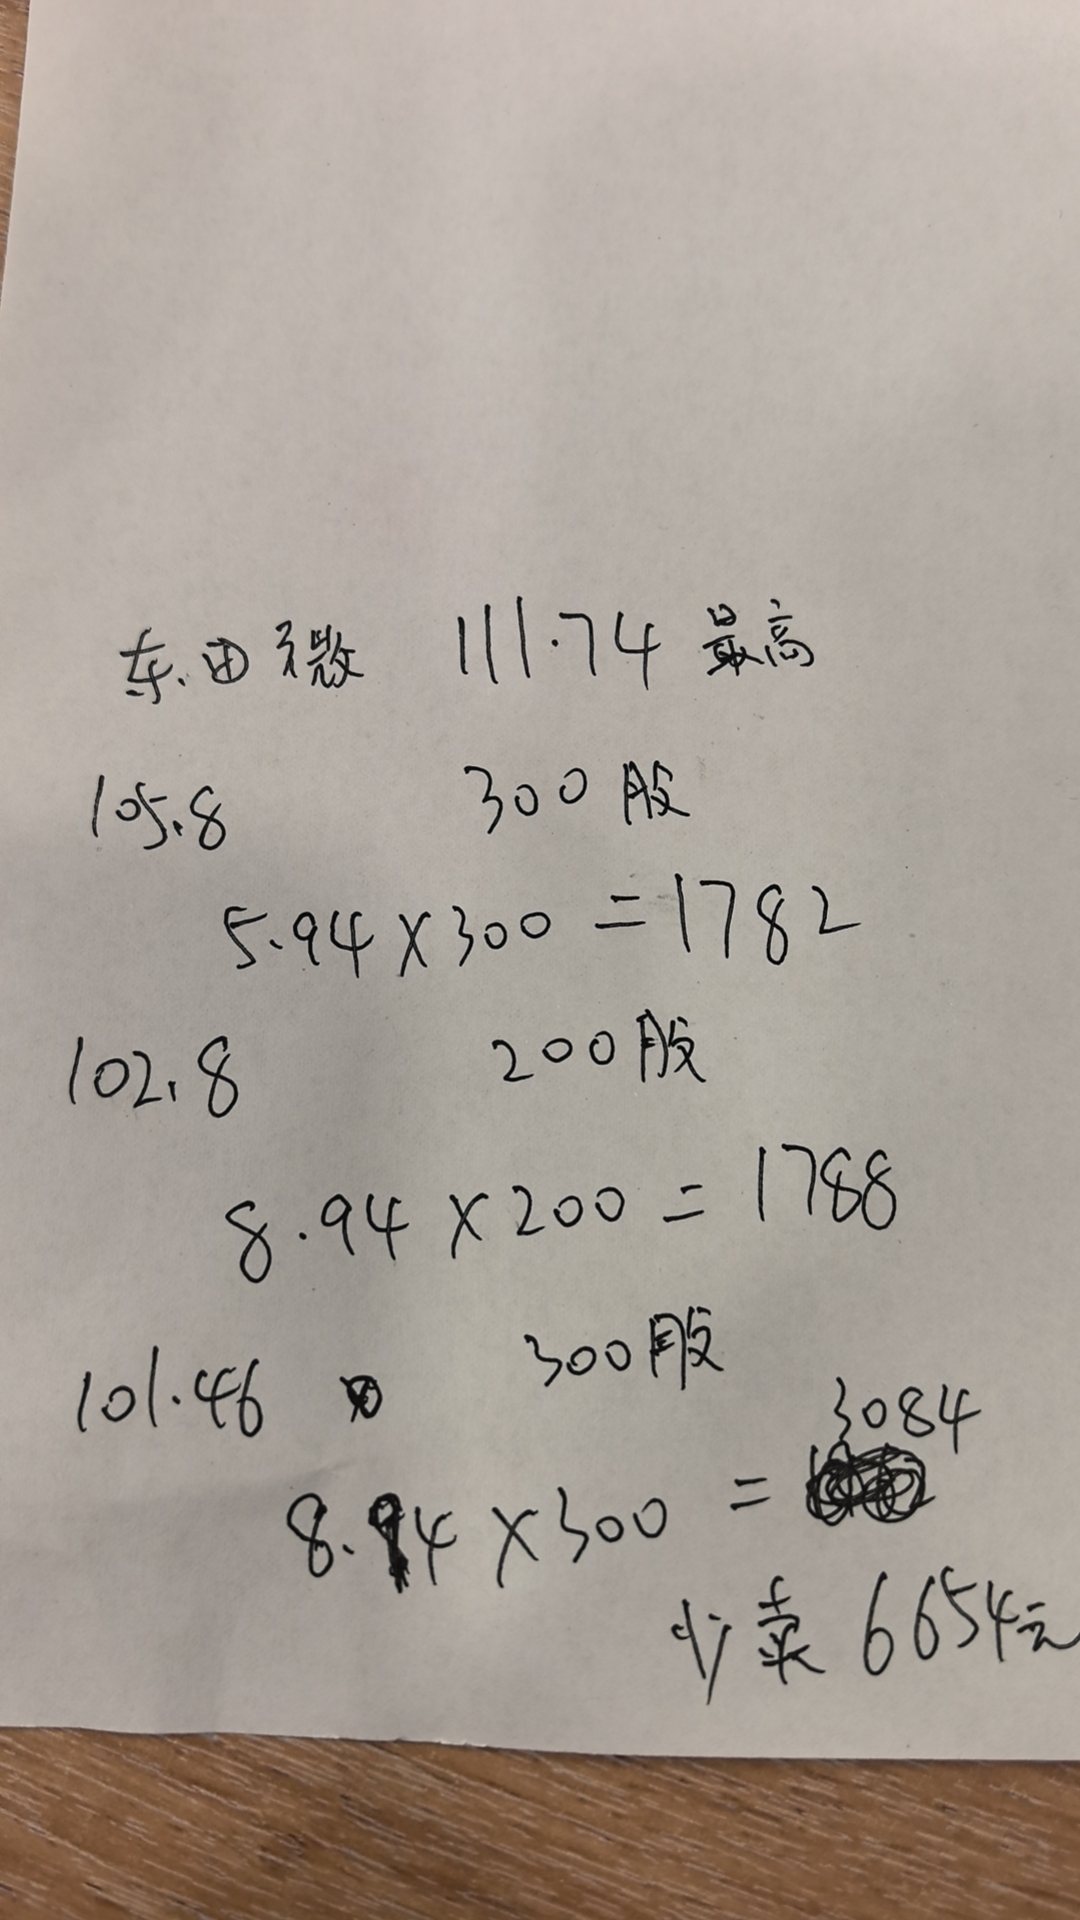 东田微 111.74 最高
105.8 300股
5.94×300=1782
102.8 200股
8.94×200=1788
101.46 300股
3084
8.94×300=
少卖6654元